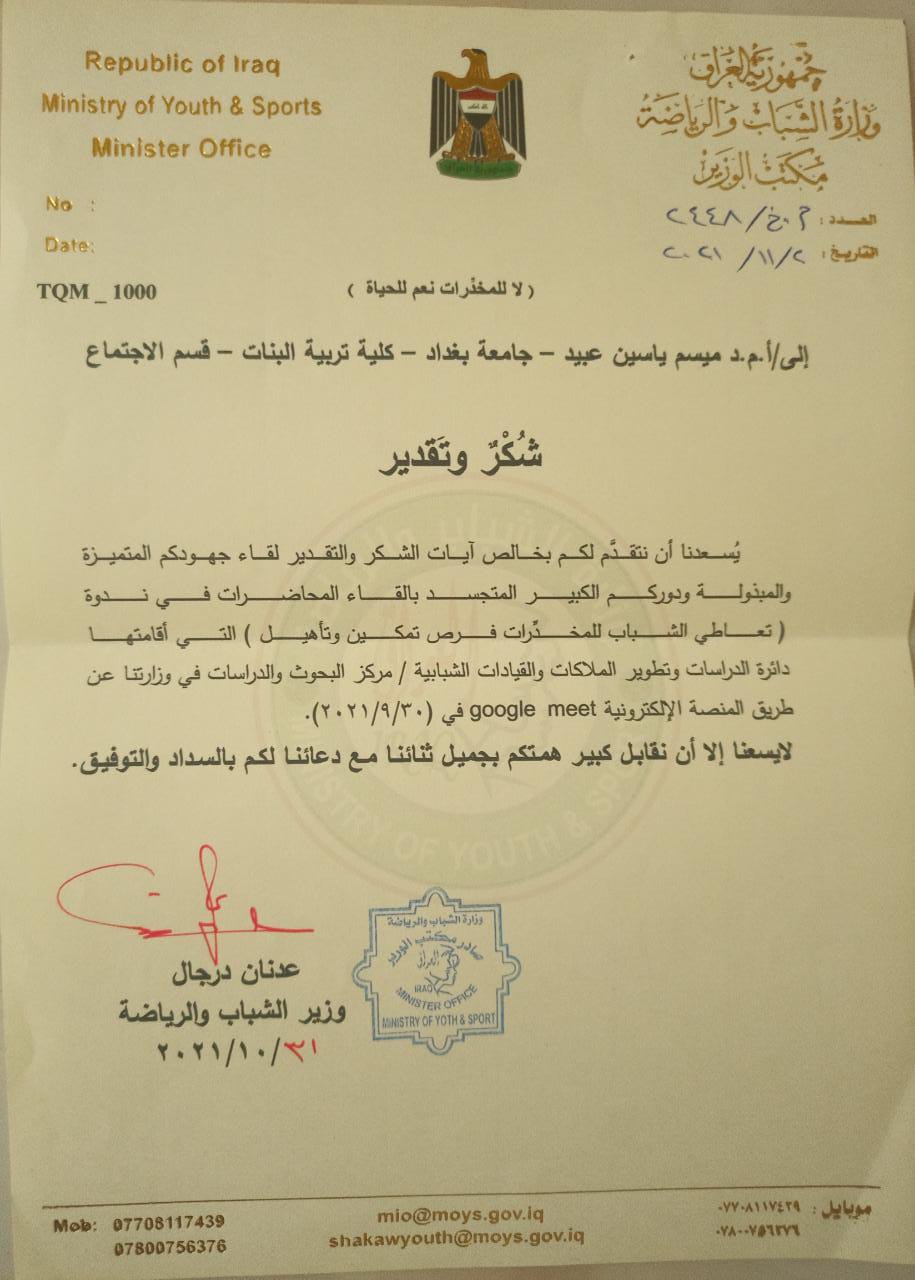 Republic of Iraq
Ministry of Youth & Sports
Minister Office
No :
Date:
جمهورية العراق
وزارة الشباب والرياضة
مكتب الوزير
العدد : م.خ/ ٢٤٤٨
التاريخ: ٢٠٢١/١١/٢
TQM _ 1000
( لا للمخدّرات نعم للحياة )
إلى/أ.م.د ميسم ياسين عبيد – جامعة بغداد – كلية تربية البنات – قسم الاجتماع
شُكْرٌ وتَقدير
يُسعدنا أن نتقدَّم لكم بخالص آيات الشكر والتقدير لقاء جهودكم المتميزة
والمبذولة ودوركم الكبير المتجسد بالقاء المحاضرات في ندوة
( تعاطي الشباب للمخدِّرات فرص تمكين وتأهيل ) التي أقامتها
دائرة الدراسات وتطوير الملاكات والقيادات الشبابية / مركز البحوث والدراسات في وزارتنا عن
طريق المنصة الإلكترونية google meet في (٢٠٢١/٩/٣٠).
لايسعنا إلا أن نقابل كبير همتكم بجميل ثنائنا مع دعائنا لكم بالسداد والتوفيق.
MINISTRY OF YOUTH & SPORT
عدنان درجال
وزير الشباب والرياضة
٢٠٢١/١٠/٣١
وزارة الشباب والرياضة
صادر مكتب الوزير
IRAQ
MINISTER OFFICE
MINISTRY OF YOTH & SPORT
Mob: 07708117439
07800756376
mio@moys.gov.iq
shakawyouth@moys.gov.iq
موبايل : ٠٧٧٠٨١١٧٤٣٩
٠٧٨٠٠٧٥٦٣٧٦